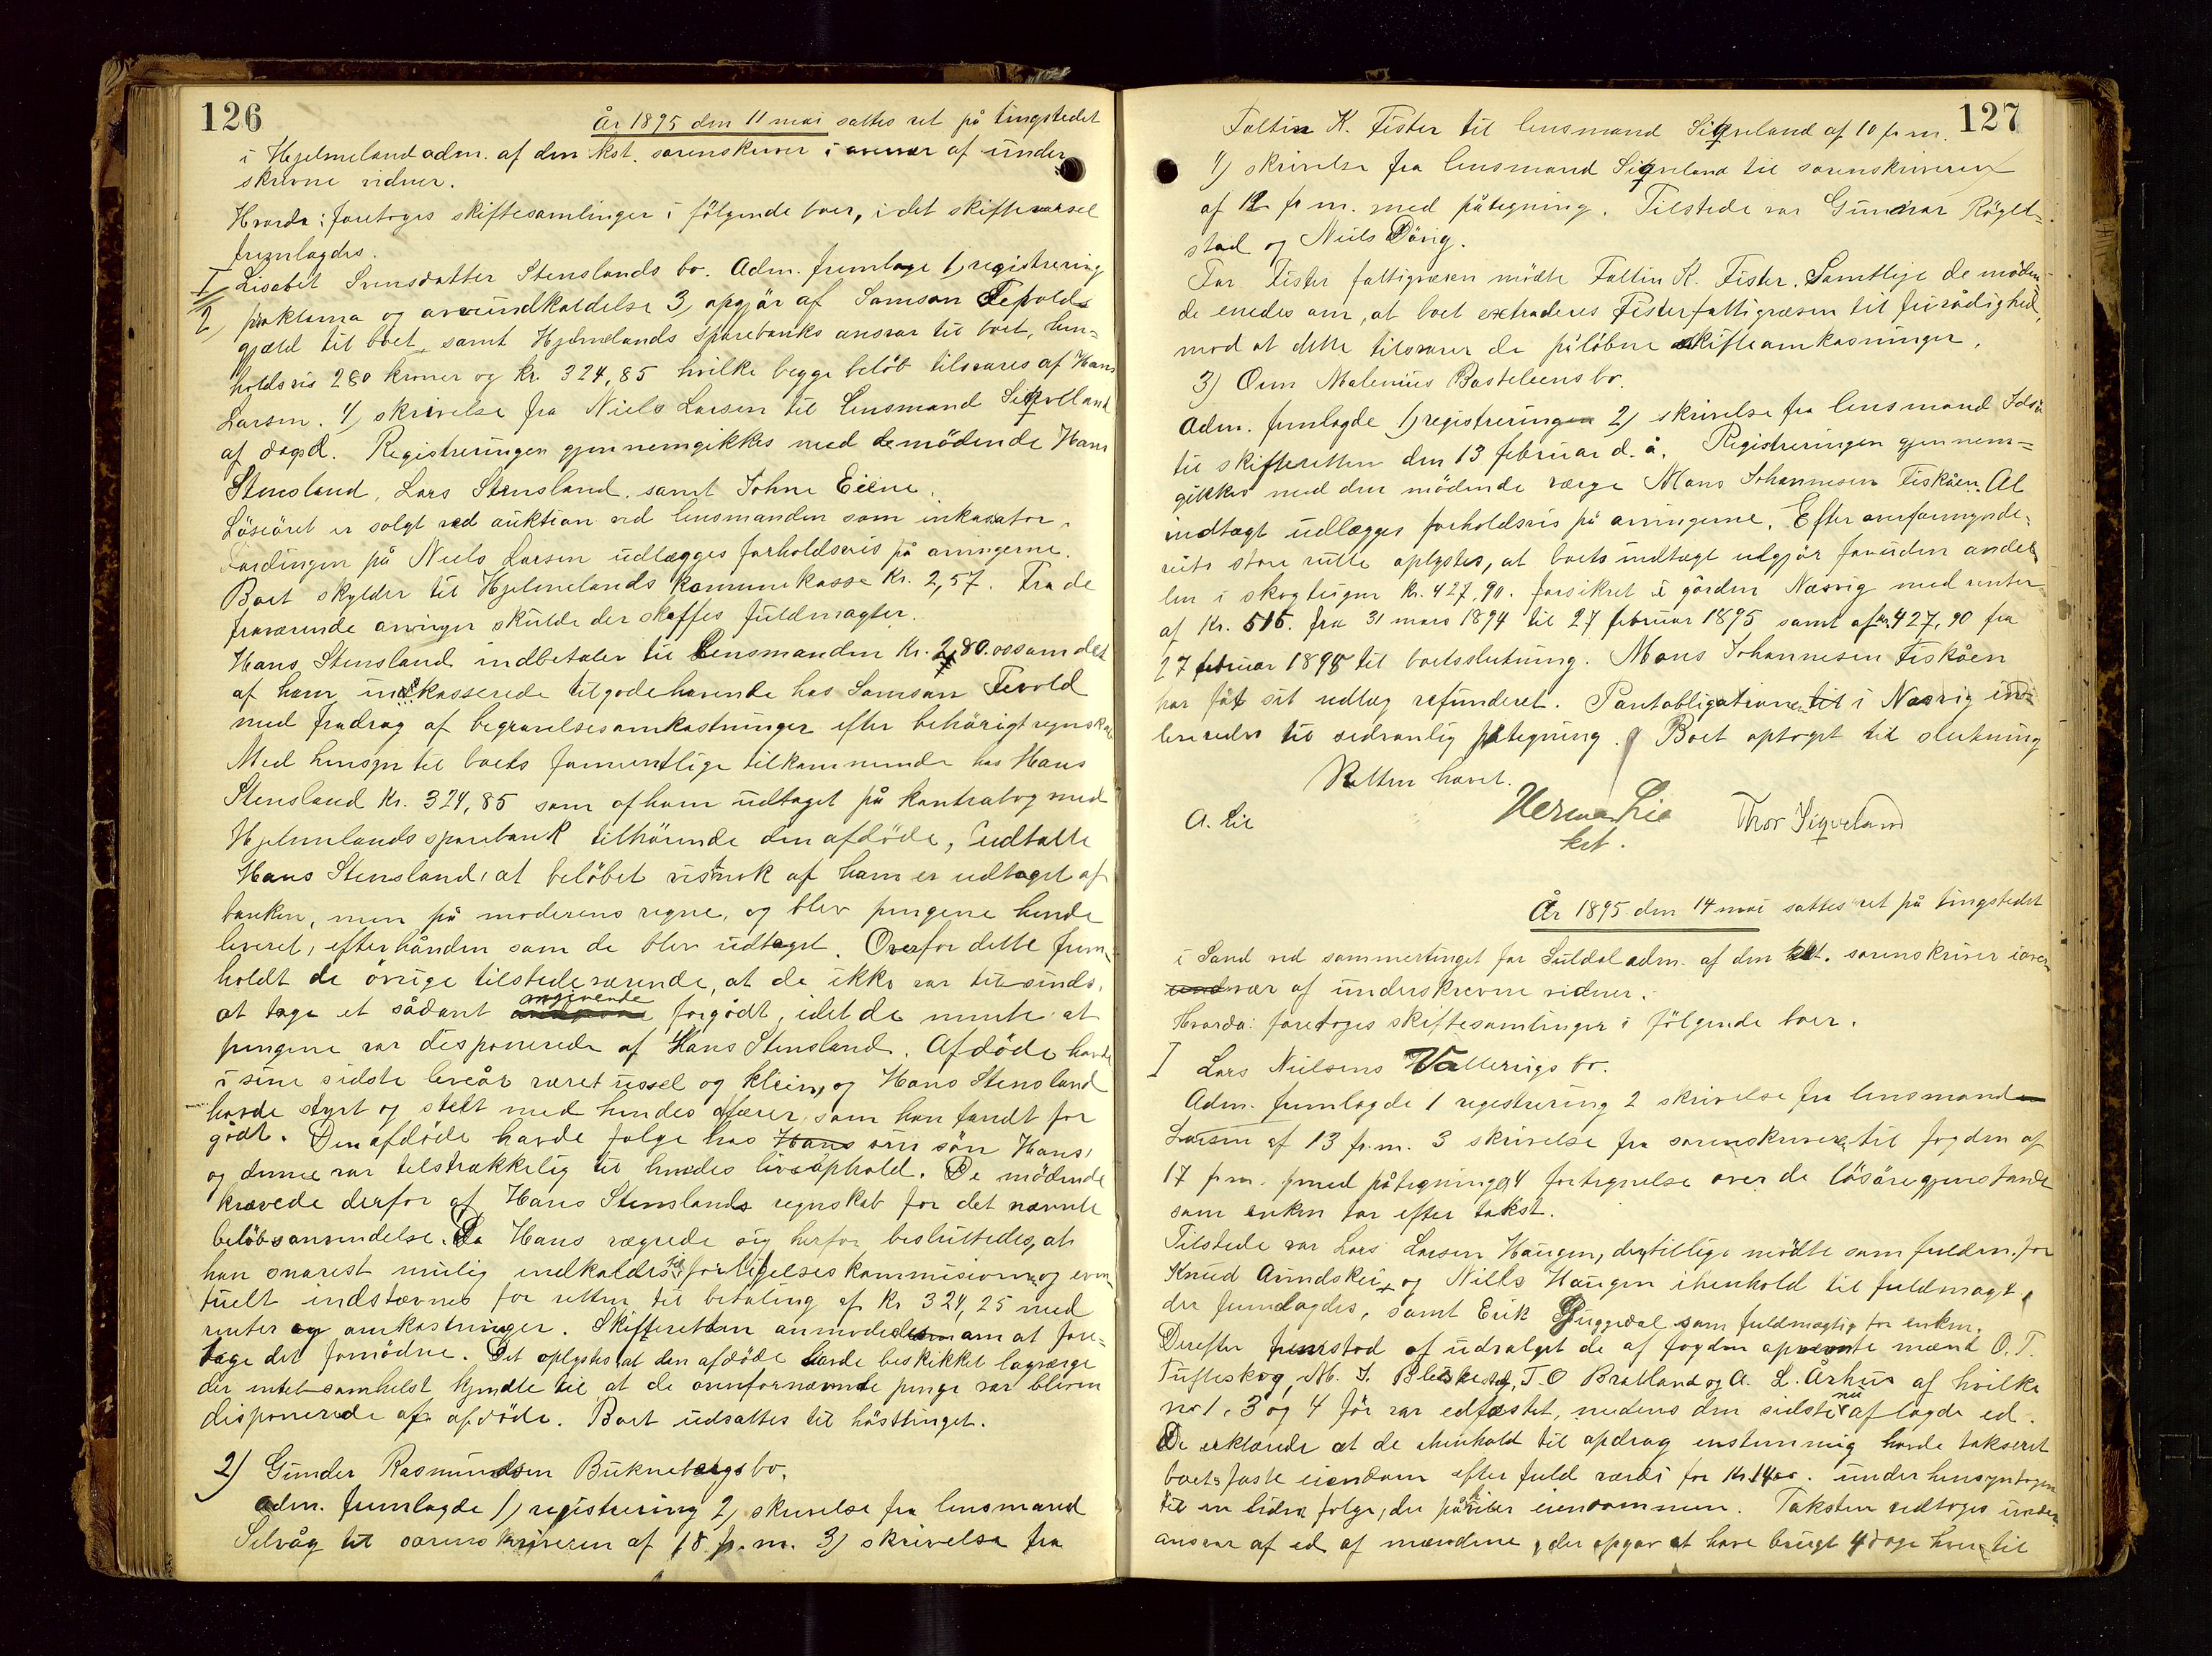 126
År 1895 den 11 mai sattes ret på tingstedet
i Hjelmeland adm. af den kst. sorenskriver i overvær af under
skrevne vidner.
Hvorda: foretoges skiftesamlinger i følgende boer, idet skiftevarsel
fremlagdes.
I Lisabet Svensdatter Stenslands bo. Adm. fremlage 1) registrering
2) proklama og arveindkaldelse 3) opgjør af Samson Tefvolds
gjæld til boet, samt Hjelmelands sparebanks ansvar til boet, hen-
holdsvis 280 kroner og kr. 324,85 hvilke begge beløb tilsvares af Hans
Larsen. 4) skrivelse fra Niels Larsen til lensmand Siqveland
af dags d. Registreringen gjennemgikkes med de mødende Hans
Stensland, Lars Stensland, samt Johne Eiene.
Løsøret er solgt ved auktion ved lensmanden som inkasator.
Fordingen på Niels Larsen udlægges forholdsvis på arvingerne.
Boet skylder til Hjelmelands komunekasse Kr. 2,57. Fra de
fraværende arvinger skulde der skaffes fuldmagter.
Hans Stensland indbetaler til Lensmanden Kr. 280. ossom det
af ham indkasserede tilgodehavende hos Samson Tevold
med fradrag af begravelsesomkostninger efter behørigt regnskab
Med hensyn til boets formentlige tilkommende hos Hans
Stensland Kr. 324,85 som af ham udtaget på kontrabog med
Hjelmelands sparebank tilhørende den afdøde, udtalte
Hans Stensland, at beløbet vistnok af ham er udtaget af
banken, men på moderens regne, og blev pengene hende
leveret, efterhånden som de blev udtaget. Overfor dette frem-
holdt de øvrige tilstedeværende, at de ikke var tilsinds,
at tage et sådant angivende forgodt, idet de mente at
pengene var disponerede af Hans Stensland. Afdøde havde
i sine sidste leveår været ussel og klein, og Hans Stensland
havde styrt og stelt med hendes affærer som han fandt for
godt. Den afdøde havde folge hos Hans sin søn Hans,
og denne var tilstrækkelig til hendes livsophold. De mødende
krævede derfor af Hans Stenslands regnskab for det nævnte
beløbs anvendelse. Da Hans vægrede sig herfor besluttedes, at
han snarest mulig indkaldes til forligelseskommisionen og even
tuelt indstævnes for retten til betaling af Kr 324,25 med
renter og omkostninger. Skifteretten anmodedes om at fore-
tage det fornødne. Det oplystes at den afdøde havde beskikket lagværge
der intetsomhelst kjendte til at de ovenfornævnte penge var bleven
disponerede af afdøde. Boet udsattes til høsttinget.
2) Gunder Rasmundsen Buknebergs bo.
Adm. fremlagde 1) registrering 2) skrivelse fra lensmand
Selvåg til sorenskriveren af 18. f. m. 3) skrivelse fra
127
Faltin K. Fister til lensmand Siqveland af 10 f. m.
4) skrivelse fra lensmand Siqveland til sorenskriveren
af 12 f. m. med påtegning. Tilstede var Gunnar Røgeld-
stad og Niels Døvig.
For Fister fattigvæsen mødte Faltin K. Fister. Samtlige de møden-
de enedes om, at boet extraderes Fister fattigvæsen til fri rådighed,
mod at dette tilsvarer de påløbne skifteomkosninger.
3) Orm Malenius Basteleens bo.
Adm. fremlagde 1) registreringen 2) skrivelse fra lensmand
til skifteretten den 13 februar d. å. Registreringen gjennem-
gikkes med den mødende værge Mons Johannesen Fiskåen. Al
indtægt udlægges forholdsvis på arvingerne. Efter overformynde-
riets store rulle oplystes, at boets indtægt udgjør foruden andel
len i skogteigen Kr. 427,90. forsikret i gården Næsvig med renter
af Kr. 515. fra 31 mars 1894 til 27 februar 1895 samt af kr. 427,90 fra
27 februar 1895 til boetsslutning. Mons Johannesen Fiskåen
har fåt sit udlæg refunderet. Pantobligationen til i Næsvig ind-
leveredes til sedvanlig påtegning. Boet optoges til slutning
Retten hævet.
A. Lie
Herman Lie
kst.
Thor Siqveland
År 1895 den 14 mai sattes ret på tingstedet
i Sand ved sommertinget for Suldal adm. af den kst. sorenskriver i over
vær af underskrevne vidner.
Hvorda: foretoges skiftesamlinger i følgende boer.
I Lars Nielsens Vallerigs bo.
Adm. fremlagde 1 registrering 2 skrivelse fra lensmand
Larsen af 13 f. m. 3 skrivelse fra sorenskriveren til fogden af
17 f. m. med påtegninger 4 fortegnelse over de løsøregjenstande
som enken tar efter takst.
Tilstede var Lars Larsen Haugen, der tillige mødte som fuldm. for
Knud Aundskei og Nills Haugen i henhold til fuldmagt,
der fremlagdes, samt Erik Guggedal som fuldmægtig for enken.
Derefter fremstod af udvalget de af fogden opnævnte mænd O. T.
Tufteskog, M. J. Bleiskestad, T. O Bratland og A. L. Århus af hvilke
no 1, 3 og 4 før var edfæstet, medens den sidste nu aflagde ed.
De erklærede at de i henhold til opdrag enstemmig havde takseret
boets faste eiendom efter fuld værdi for Kr. 1400. under hensyntagen
til en liden folge, der påhviler eiendommen. Taksten vedtoges under
ansvar af ed af mændene, der opgav at have brugt 4 dage hver til